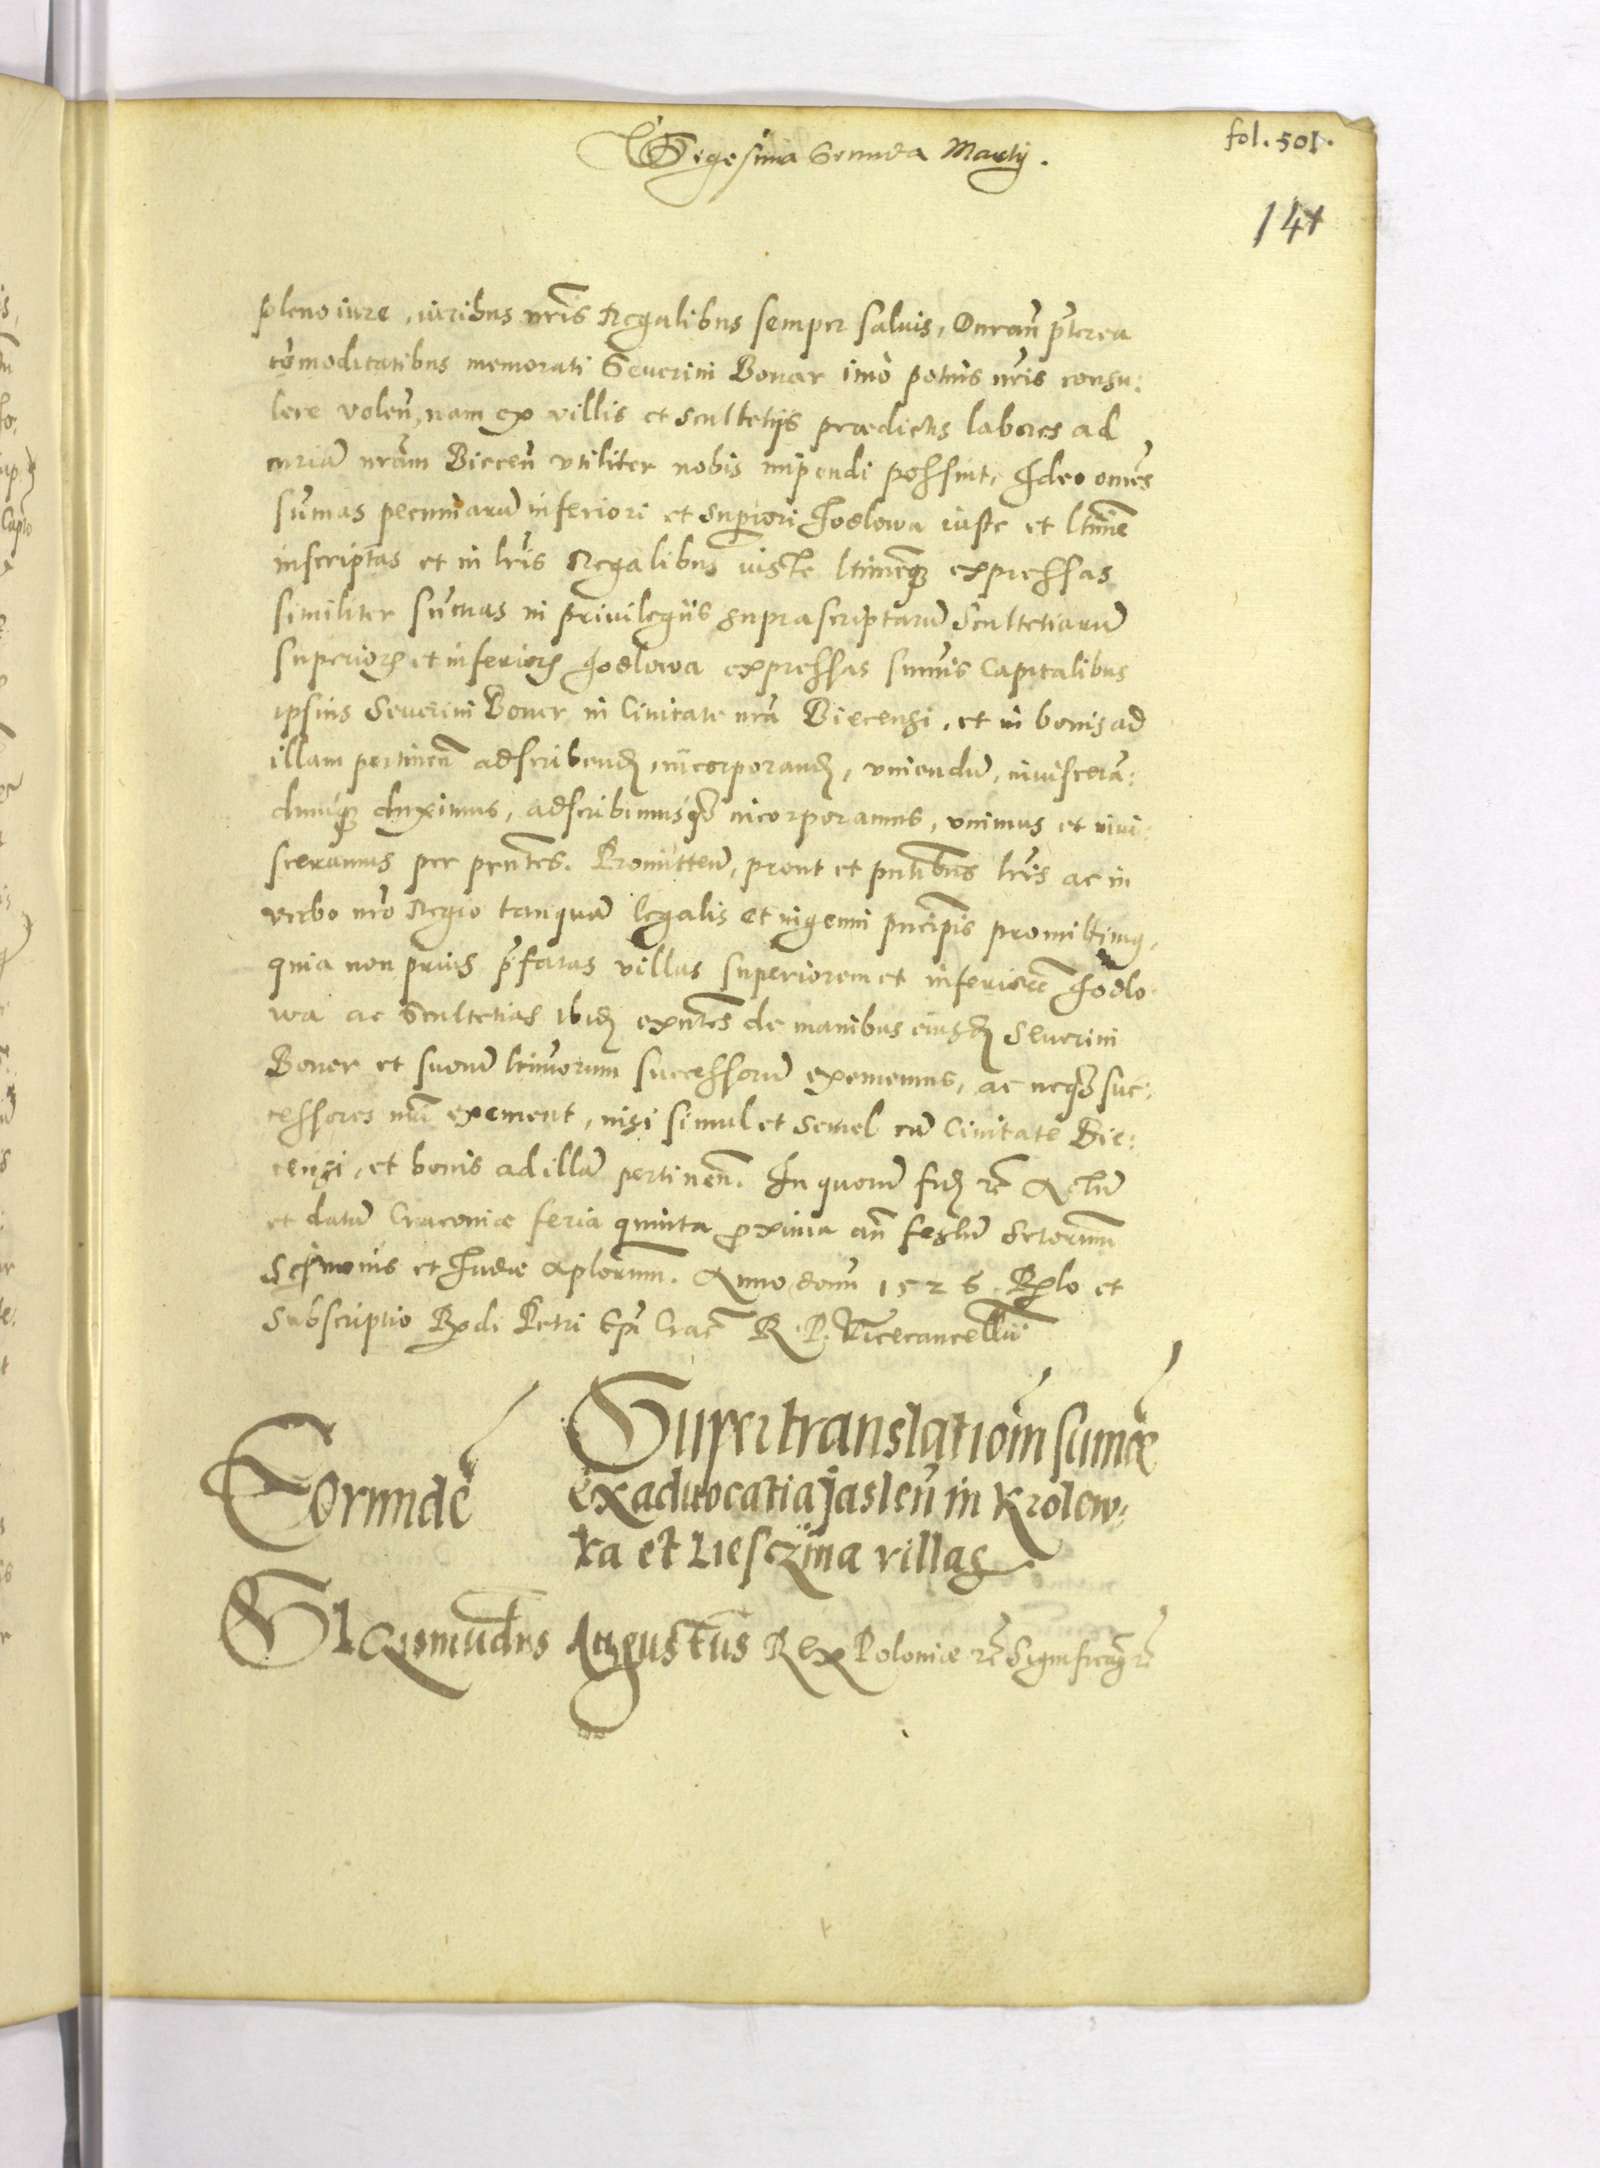 Vigesima Secunda Martij.
fol. 501.
141
pleno iure, iuribus nr̃is Regalibus semper saluis, Omniũ p̃terea
cõmoditatibus memorati Seuerini Bonar imo potius nr̃is consu:
lere volen̄, nam ex villis et scultetijs prædictis labores ad
curiā nrām Biecen̄ vtiliter nobis impendi possint, Ideo omēs
sūmas pecuniarū inferiori et superiori Jodlowa iuste et ltīme
inscriptas et in lr̃is Regalibus iuste ltīmeq̃ expressas
similiter sūmas in priuilegijs suprascriptarū Scultetiarū
superioris et inferioris Jodlowa expressas sūmis Capitalibus
ipsius Seuerini Boner in Ciuitate nrā Biecensi, et in bonis ad
illam pertinen̄ adscribend̄, incorporand̄, vniendū, inuiscerā:
dumq̃ duximus, adscribimusq̃ incorporamus, vnimus et inui:
sceramus per pn̄tes. Promitten̄, prout et pn̄tibus lr̃is ac in
verbo nr̃o Regio tanquā legalis et ingenui pn̄cipis promittimus,
quia non prius p̃fatas villas superiorem et inferiorē Jodlo
wa ac Scultetias ibid̄ exn̄tes de manibus eiusd̄ Seuerini
Boner et suorū ltīmorum successorū exememus, ac neq̃ suc:
cessores nr̃i exement, nisi simul et semel cū Ciuitate Bie:
censi, et bonis ad illā pertinen̄. In quorū fid̄ rc̄ Actū
et datū Cracouiæ feria quinta proxima an̄ festū Sctorum
Simonis et Judæ Aplorum. Anno domi 1526. Relo et
Subscriptio Rndi Petri Epi Crac̄ R. P. Vicecancellarii
Eorunde
Super translationē sumæ
ex aduocatia Jaslen̄ in Krolow:
ka et Liesczina villas
SIgismundus Augustus Rex Poloniæ rc̄ Significam9 rc̄